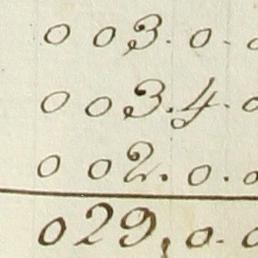 003.0.0
003.4.0
002.0.0
029.0.0